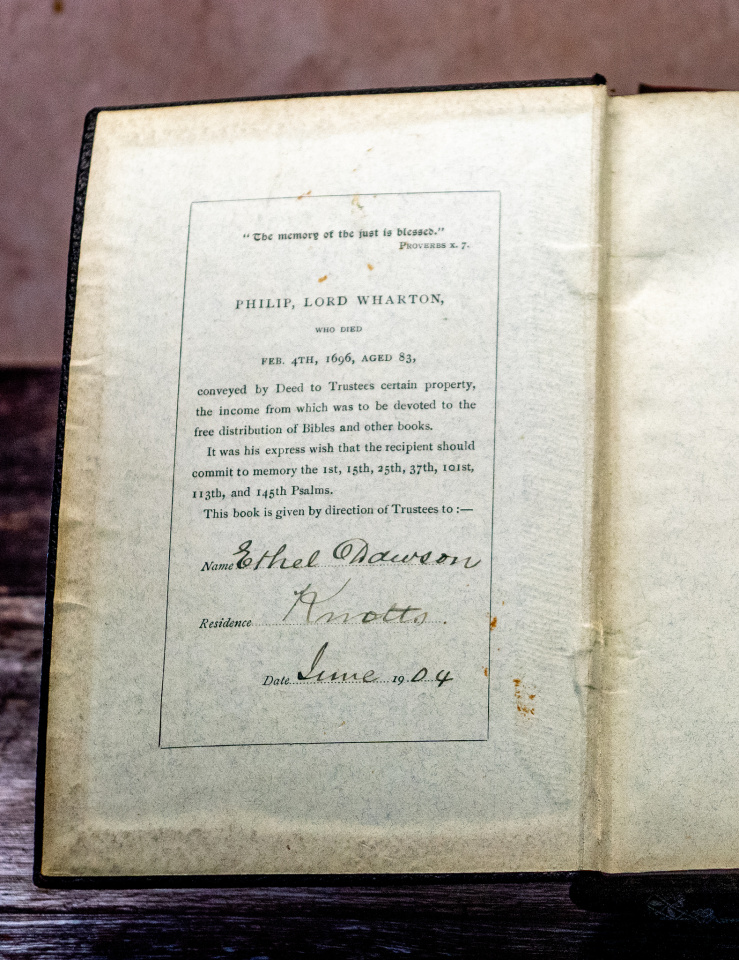 "The memory of the just is blessed."
PROVERBS x. 7.
PHILIP, LORD WHARTON,
WHO DIED
FEB. 4TH, 1696, AGED 83,
conveyed by Deed to Trustees certain property,
the income from which was to be devoted to the
free distribution of Bibles and other books.
It was his express wish that the recipient should
commit to memory the 1st, 15th, 25th, 37th, 101st,
113th, and 145th Psalms.
This book is given by direction of Trustees to :—
Name Ethel Dawson
Residence Knotts.
Date June 1904